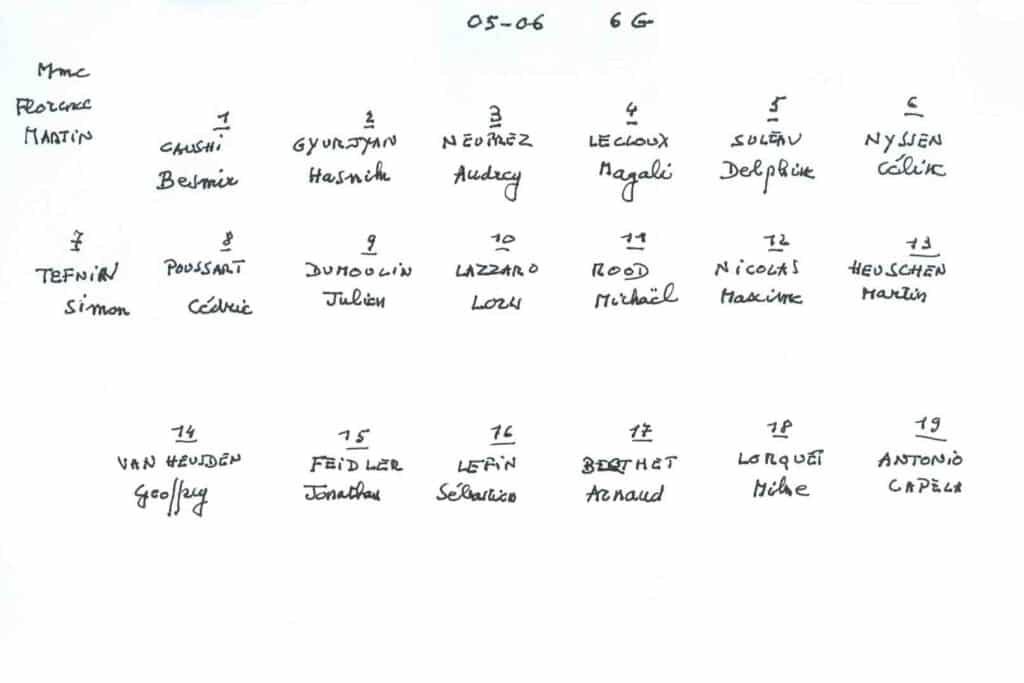 05-06 6 G
Mme
Florence
MARTIN
1 2 3 4 5 6
CAUSHI GYURJYAN NEUPREZ LECLOUX SULEAU NYSSEN
Besmir Hasmik Audrey Magali Delphine Céline
7 8 9 10 11 12 13
TEFNIN POUSSART DUMOULIN LAZZARO ROOD NICOLAS HEUSCHEN
Simon Cédric Julien Michaël Maxime Martin
14 15 16 17 18 19
VAN HEUSDEN FEIDLER LEFIN BERTHET LORQUET ANTONIO
Geoffrey Jonathan Sébastien Arnaud CAPELA